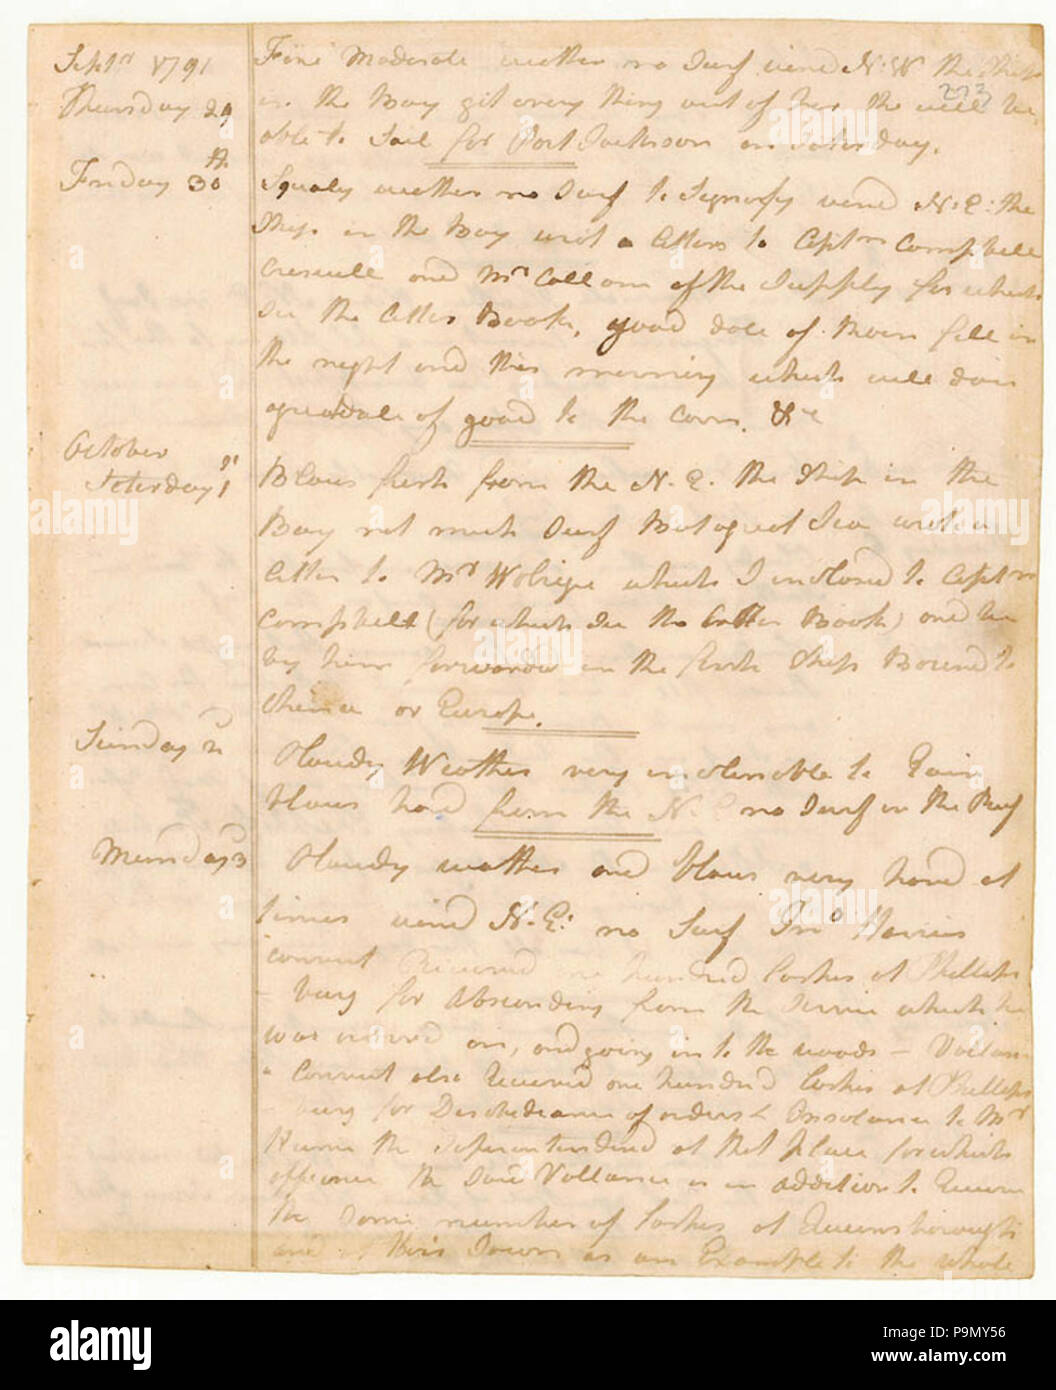 Septr 1791
Thursday 29
Fine Moderate wether no Surf wind N:W the Ship
273
in the Bay git every thing out of her she will be
able to Sail for Port Jackson on Saterday.
Friday 30th
Squaly wether no Surf to Signefy wind N.E: the
Ship in the Bay wrot a letters to Captn Campbell
and Mr Callam of the Supply for which
See the letter Book, good dale of Rain fell in
the night and this morning which will doe
agreadale of good to the Corn. &c
October
Saterday 1st
Blows fresh from the N.E. the Ship in the
Bay not much Surf But agreat Sea wrot a
letter to Mr which I inclosed to Captn
Campbell (for which See the letter Book) and be
by him forwarded in the first Ship Bound to
China or Europe.
Sunday 2d
Cloudy Weather very inclenable to Rain
blows hard from the N.E no Surf in the Bay
Munday 3d
Cloudy wether and blows very hard at
times wind N.E: no Surf Jno
convict Received one hundred lashes at Phillips
burg for Absconding from the which he
was on, and going in to the woods —
convict also Received one hundred lashes at Phillips
burg for Disobediance of orders & Insolance to Mr
the Superentendend at that place for which
offence the Said Vollance is in addition to Receive
the Same number of lashes at Queensborough
and this Town as an Example to the whole
alamy
a
alamy
www.alamy.com
Image ID: P9MY56